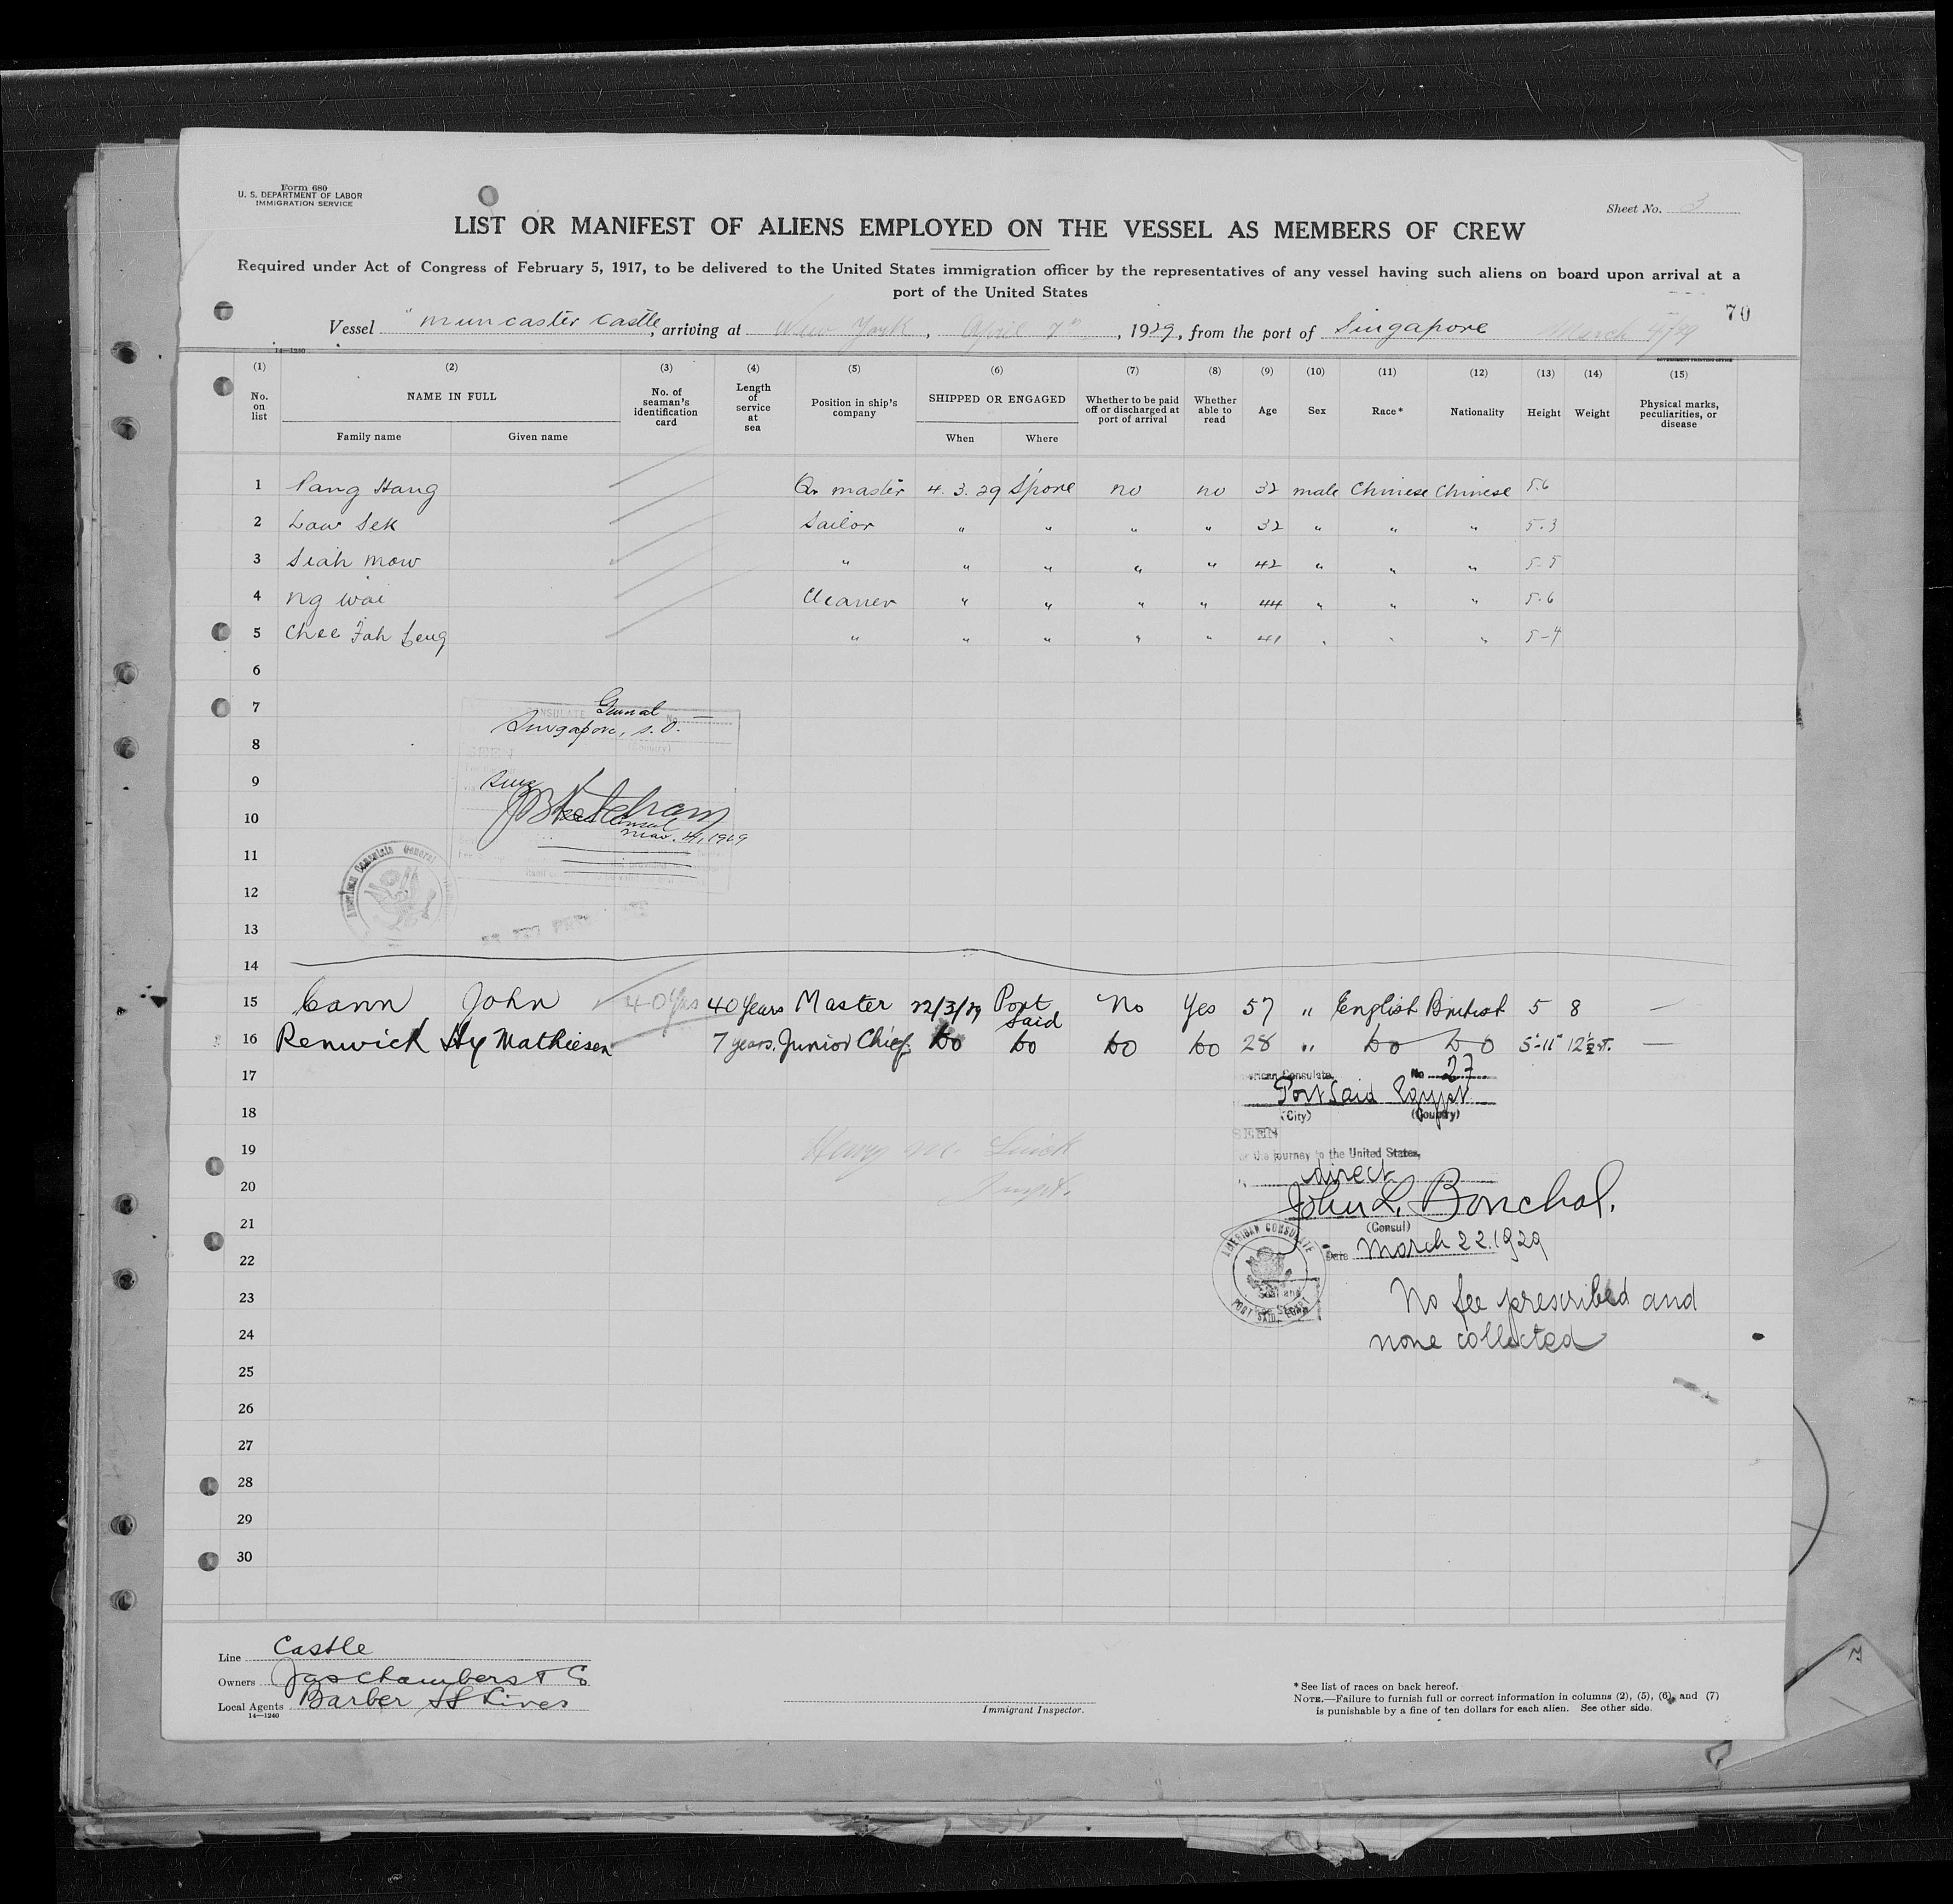 Form 680
U. S. DEPARTMENT OF LABOR
IMMIGRATION SERVICE
Sheet No. 3
LIST OR MANIFEST OF ALIENS EMPLOYED ON THE VESSEL AS MEMBERS OF CREW
Required under Act of Congress of February 5, 1917, to be delivered to the United States immigration officer by the representatives of any vessel having such aliens on board upon arrival at a
port of the United States
70
Vessel "Muncaster Castle, arriving at New York, April 7th, 1929, from the port of Singapore March 4/29
14—1240
GOVERNMENT PRINTING OFFICE
(1) (2) (3) (4) (5) (6) (7) (8) (9) (10) (11) (12) (13) (14) (15)
No. on list NAME IN FULL No. of seaman's identification card Length of service at sea Position in ship's company SHIPPED OR ENGAGED Whether to be paid off or discharged at port of arrival Whether able to read Age Sex Race* Nationality Height Weight Physical marks, peculiarities, or disease
Family name Given name When Where
1 Pang Hang Qr master 4.3.29 S'pore no no 32 male Chinese Chinese 5.6
2 Law Sek Sailor " " " " 32 " " " 5.3
3 Siah Mow " " " " " 42 " " " 5-5
4 Ng Wai Cleaner " " " " 44 " " " 5.6
5 Chee Fah Leng " " " " " 41 " " " 5-4
6
7 General
CONSULATE No.
Singapore, S.S.
8 (Country)
SEEN
9
10
Consul
Mar. 4, 1929
11
American Consulate General
12
13
14
15 Cann John 40 Yrs 40 Years Master 22/3/29 Port Said No Yes 57 " English British 5 8 —
16 Renwick Hy Mathiesen 7 years. Junior Chief do do do do 28 " do do 5'-11" 12½ st. —
17 American Consulate No 27
Port Said Egypt
18 (City) (Country)
SEEN
19 Henry M.
for the journey to the United States,
20 Inspt.
direct
John L. Bouchal.
21 (Consul)
AMERICAN CONSULATE
PORT SAID, EGYPT
22 Date March 22. 1929
23 No fee prescribed and
24 none collected
25
26
27
28
29
30
Line Castle
Owners Jas Chambers & Co
Local Agents Barber SS Lines
14—1240
Immigrant Inspector.
* See list of races on back hereof.
NOTE.—Failure to furnish full or correct information in columns (2), (5), (6), and (7)
is punishable by a fine of ten dollars for each alien. See other side.